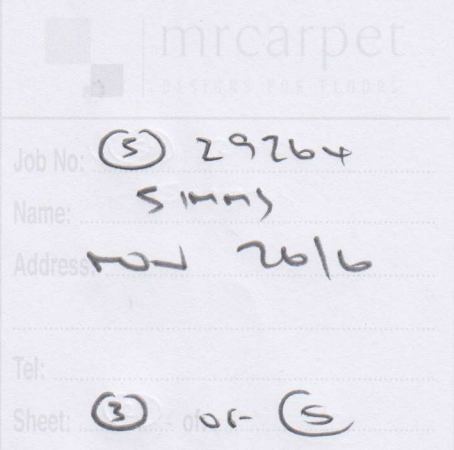 mrcarpet
DESIGNS FOR FLOORS
Job No: (S) 29264
Name: SIMMS
Address: MON 26/6
Tel:
Sheet: (3) of OF (5)